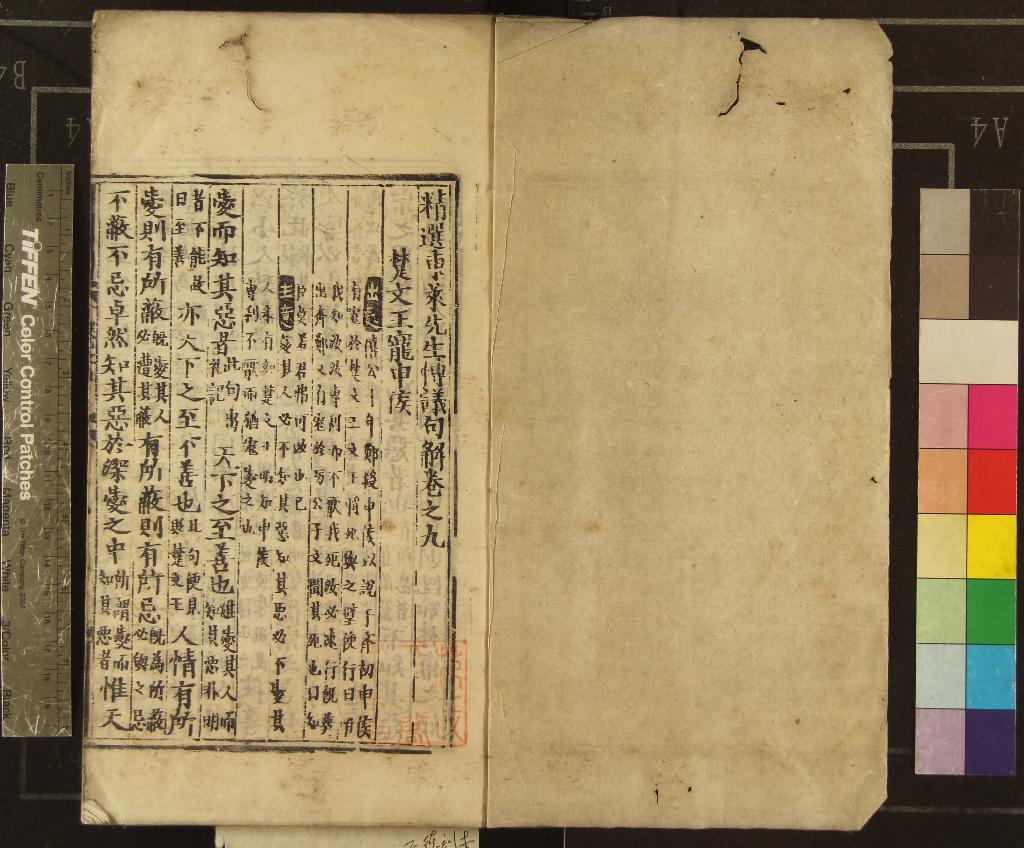 精選東萊先生博議句解卷之九
楚文王寵申侯
出處 僖公 年鄭殺申侯以說于齊初申侯
有寵於楚文王文王將死與之璧使行曰
我知汝汝專利而不厭我死汝必速行既葬
出奔鄭又有寵於厉公子文聞其死也曰
臣莫若君弗可改也已
主意 愛其人必不知其惡知其惡必不愛其
人未有如楚文王明知申侯
專利不厭而猶寵愛之也
愛而知其惡者此句出礼記天下之至善也雖愛其人而知其惡非明
者不能故曰至善亦天下之至不善也此句便見與楚文王人情有所
愛則有所蔽既愛其人必遭其蔽有所蔽則有所忌既為所蔽必與之忌
不蔽不忌卓然知其惡於深愛之中所謂愛而知其惡者惟天
TIFFEN Color Control Patches
© The Tiffen Company, 2007
Centimetres
Inches
Blue
Cyan
Green
Yellow
Red
Magenta
White
3/Color
Black
B4
A4
A4